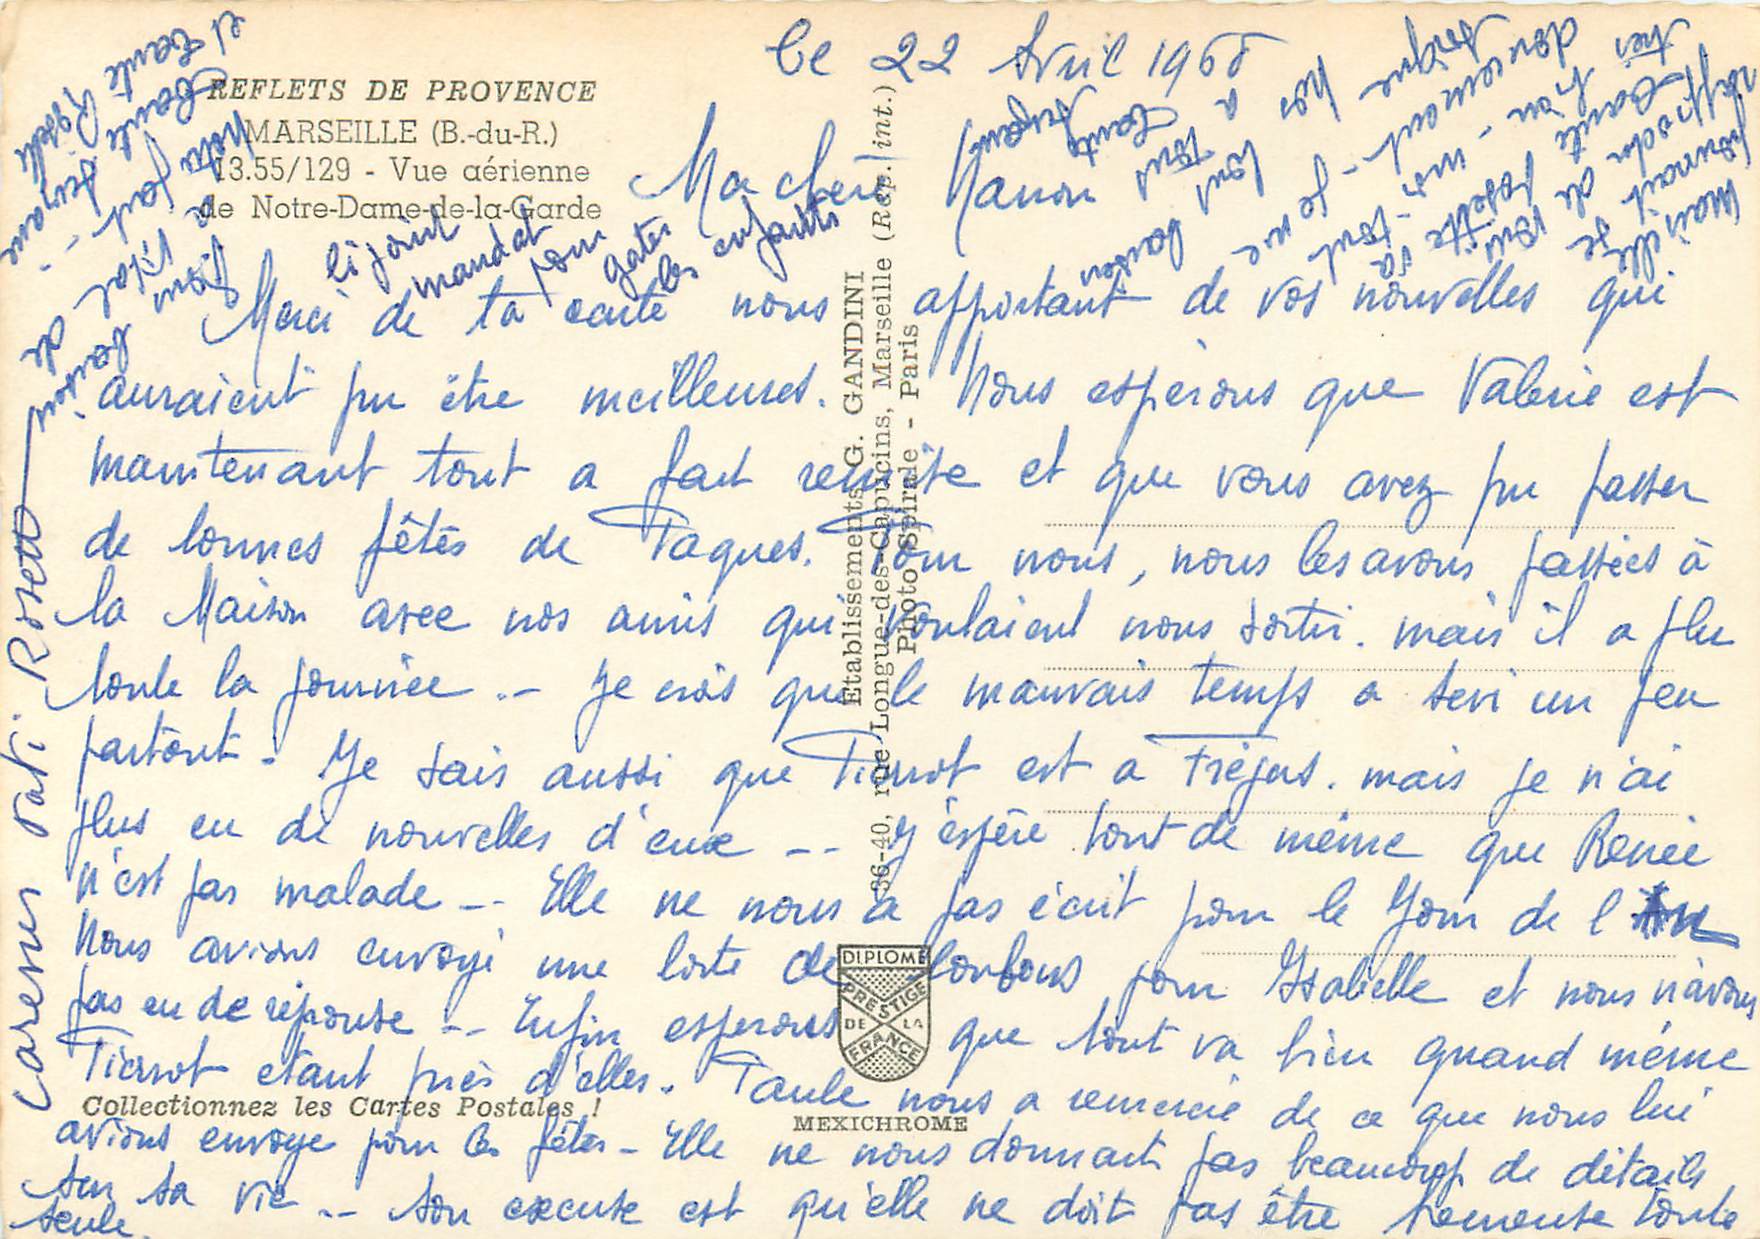 Ce 22 Avril 1968
REFLETS DE PROVENCE
MARSEILLE (B.-du-R.)
13.55/129 - Vue aérienne
de Notre-Dame-de-la-Garde
Ma chere Manon
Ci joint
mandat
pour
gater
les enfants
Merci de ta carte nous apportant de vos nouvelles qui
auraient pu être meilleures. Nous esperons que Valerie est
maintenant tout a fait remise et que vous avez pu passer
de bonnes fêtes de Paques. Pour nous, nous les avons passées à
la Maison avec nos amis qui voulaient nous sortir. mais il a plu
toute la journée -- Je crois que le mauvais temps a sevi un peu
partout - Je sais aussi que Pierrot est a Fréjus. mais je n'ai
plus eu de nouvelles d'eux -- J'espère tout de même que Renée
n'est pas malade -- Elle ne nous a pas écrit pour le Jour de l'An
Nous avions envoyé une boite de bonbons pour Isabelle et nous n'avons
pas eu de réponse -- Enfin esperons que tout va bien quand même
Pierrot etant près d'elles. Paule nous a remercié de ce que nous lui
avions envoye pour les fêtes - Elle ne nous donnant pas beaucoup de détails
sur sa vie -- son excuse est qu'elle ne doit pas être heureuse toute
seule.
Etablissements G. GANDINI
36-40, rue Longue-des-Capucins, Marseille (Rep. int.)
Photo Spirale - Paris
DIPLOME
PRESTIGE
DE LA
FRANCE
Collectionnez les Cartes Postales !
MEXICHROME
caresses Tati Rosette
et tante
Rosette